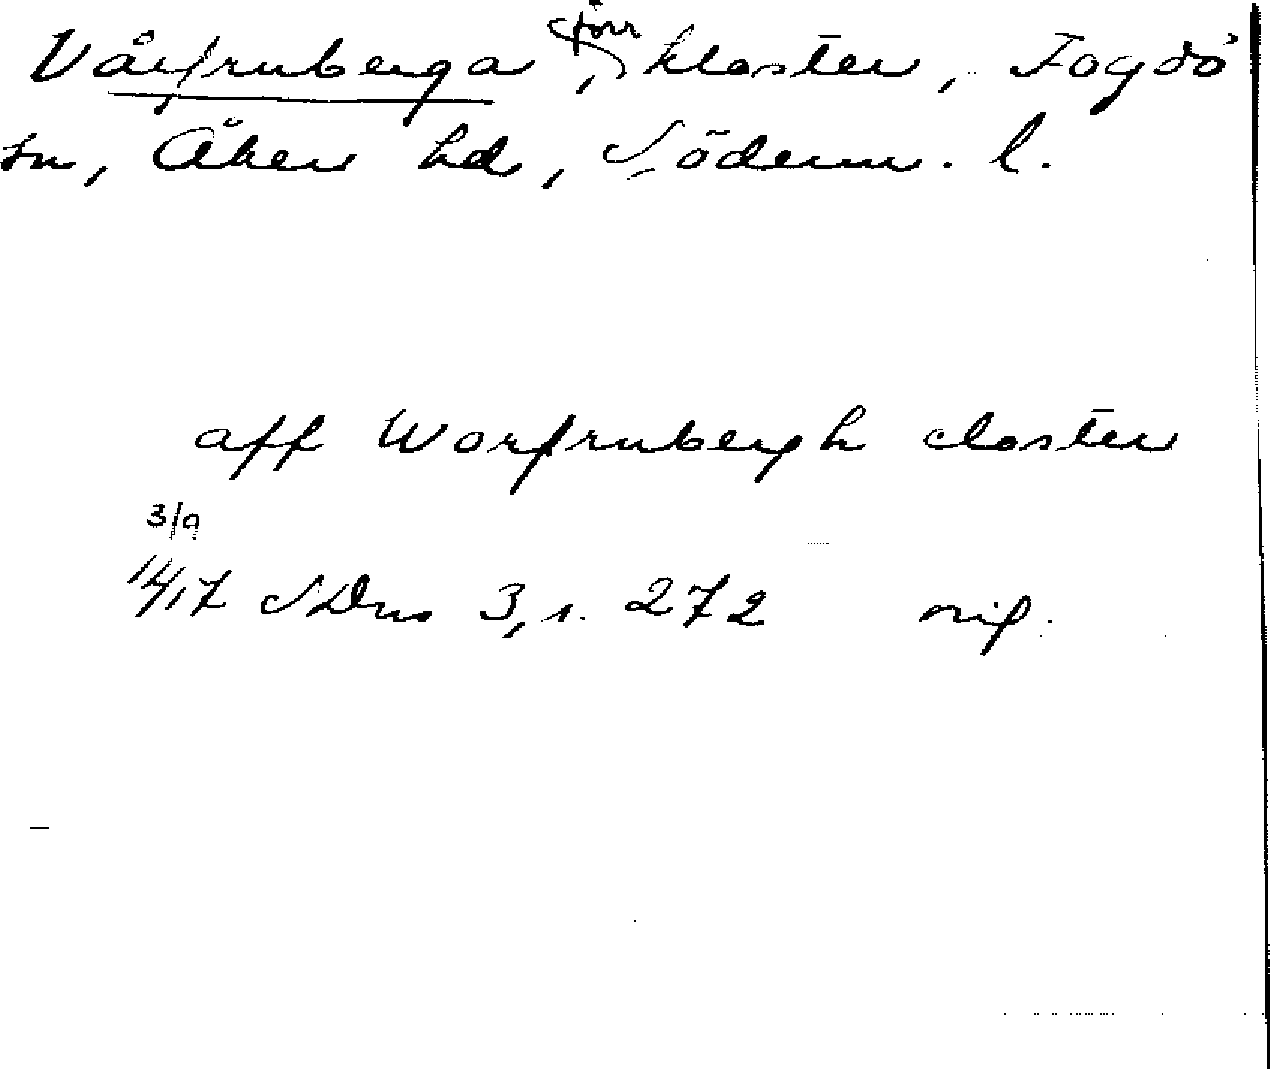 Vårfruberga, förr kloster, Fogdö
sn, Åker hd, Söderm. l.
aff Worfrubergh closter
3/9
1417 SDns 3, s. 272 orig.